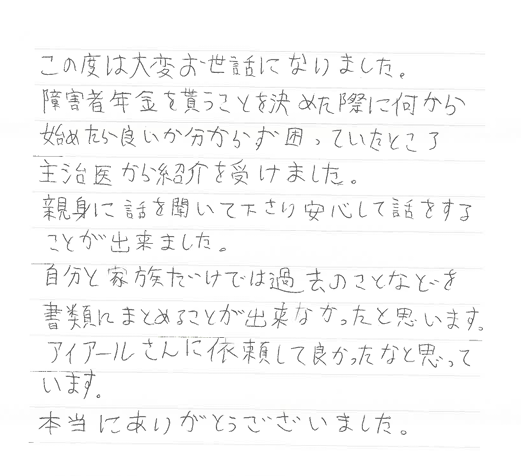 この度は大変お世話になりました。
障害者年金を貰うことを決めた際に何から
始めたら良いか分からず困っていたところ
主治医から紹介を受けました。
親身に話を聞いて下さり安心して話をする
ことが出来ました。
自分と家族だけでは過去のことなどを
書類にまとめることが出来なかったと思います。
アイアールさんに依頼して良かったなと思って
います。
本当にありがとうございました。